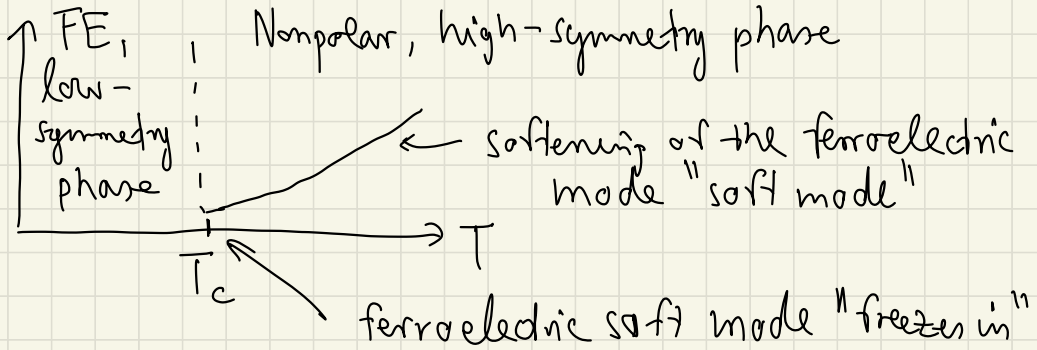 FE,
low-
symmetry
phase
Nonpolar, high-symmetry phase
softening of the ferroelectric
mode "soft mode"
T
Tc
ferroelectric soft mode "freezes in"